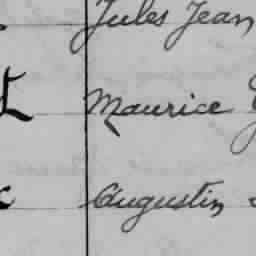 Jules Jean
Maurice
Augustin